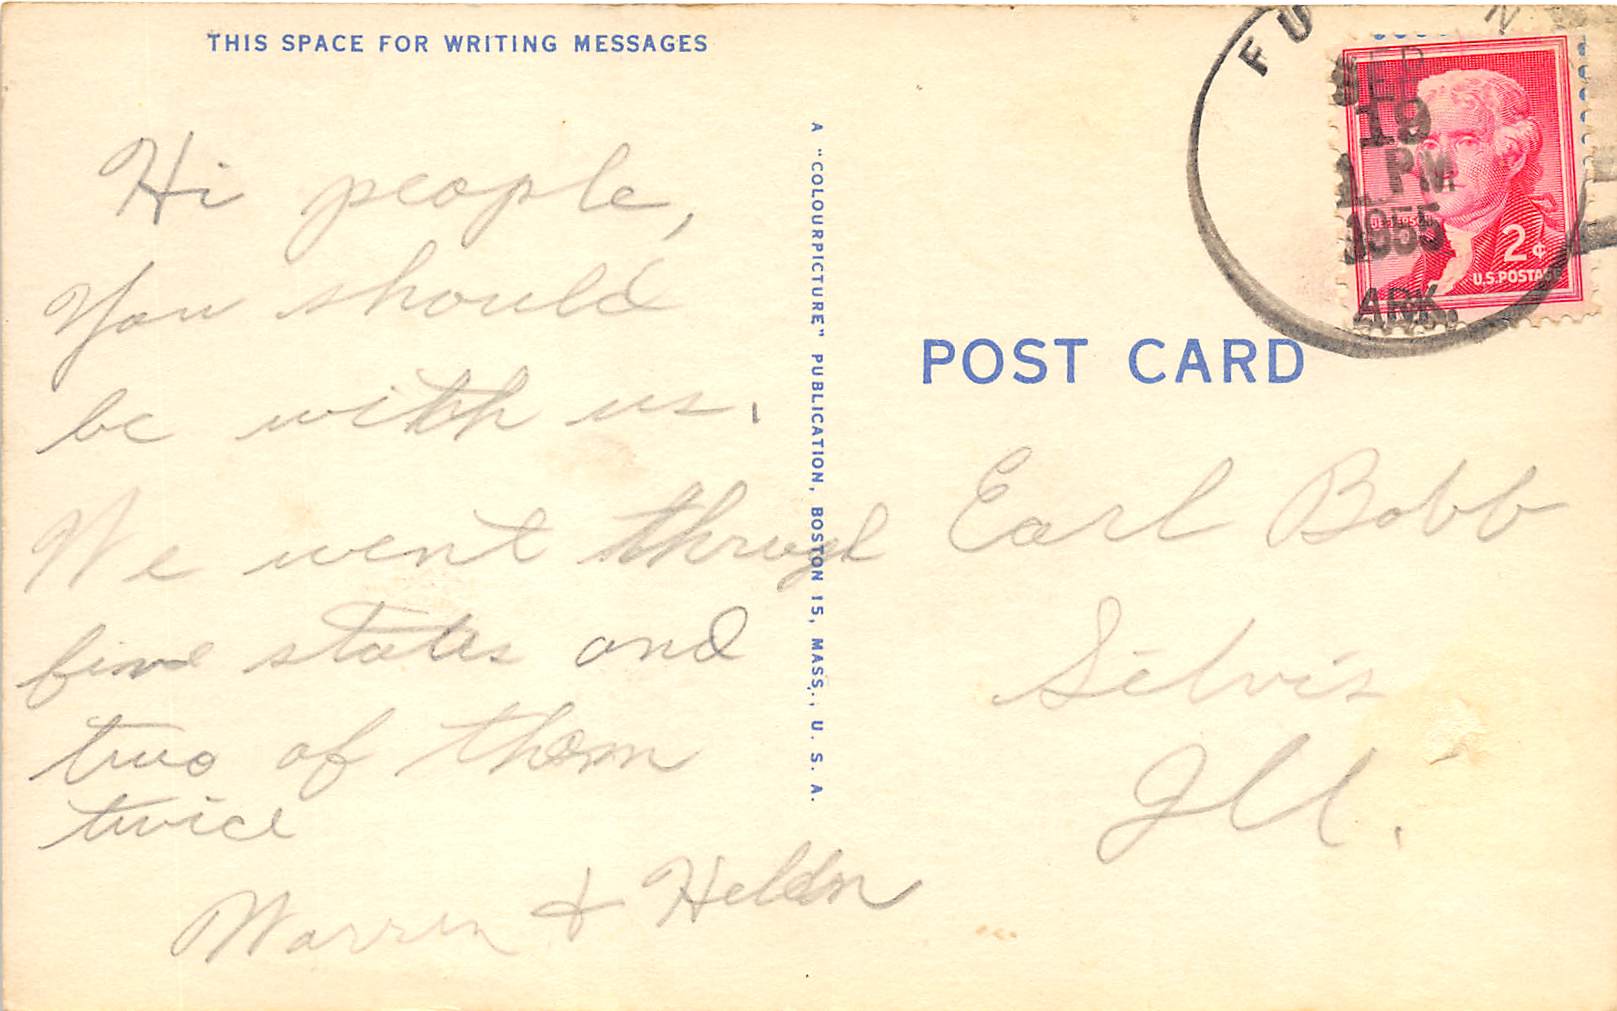 THIS SPACE FOR WRITING MESSAGES
Hi people,
You should
be with us.
We went through
five states and
two of them
twice
Warren & Hellen
A "COLOURPICTURE" PUBLICATION, BOSTON 15, MASS., U. S. A.
SEP
19
1 PM
1955
ARK.
JEFFERSON
2¢
U.S. POSTAGE
POST CARD
Earl Bobb
Silvis
Ill.